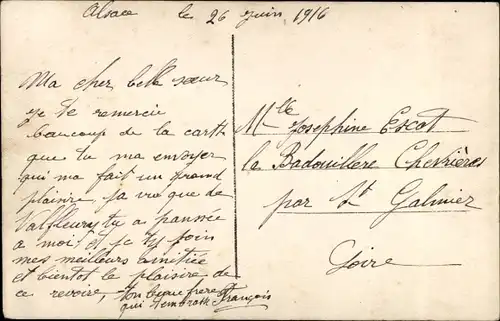 Alsace le 26 juin 1916
Ma cher belle sœur
je te remercie
beaucoup de la carth
que tu ma envoyer
qui ma fait un grand
plaisire, ja vue que de
Valfleury tu a pansnée
a moi et je ty join
mes meilleurs amitiée
et bientot le plaisire de
ce revoire, ton beau frere
qui tembrasse François
Mlle Josephine Escot
la Badouillere Chevrières
par St Galmier
Loire